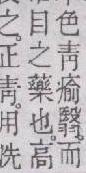 色靑瘉翳。而
目之藥也。高
之。正靑。用洗